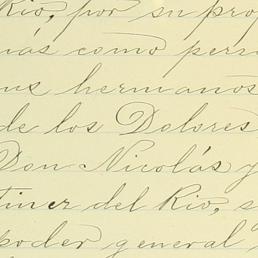 Rio, por su prop
más como pers
us hermanos
de los Dolores
Don Nicolás y
tinez del Rio, s
poder general